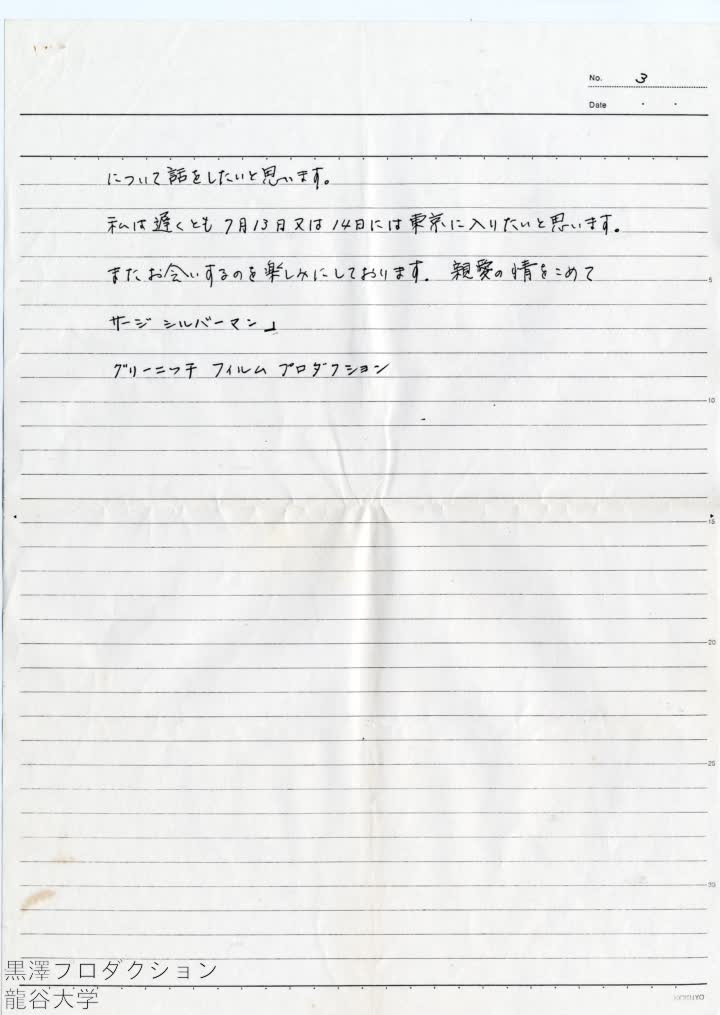 No. 3
Date ・ ・
について話をしたいと思います。
私は遅くとも7月13日又は14日には東京に入りたいと思います。
またお会いするのを楽しみにしております. 親愛の情をこめて
サージ シルバーマン」
グリーニッチ フィルム プロダクション
5
10
15
20
25
30
黒澤プロダクション
龍谷大学
KOKUYO